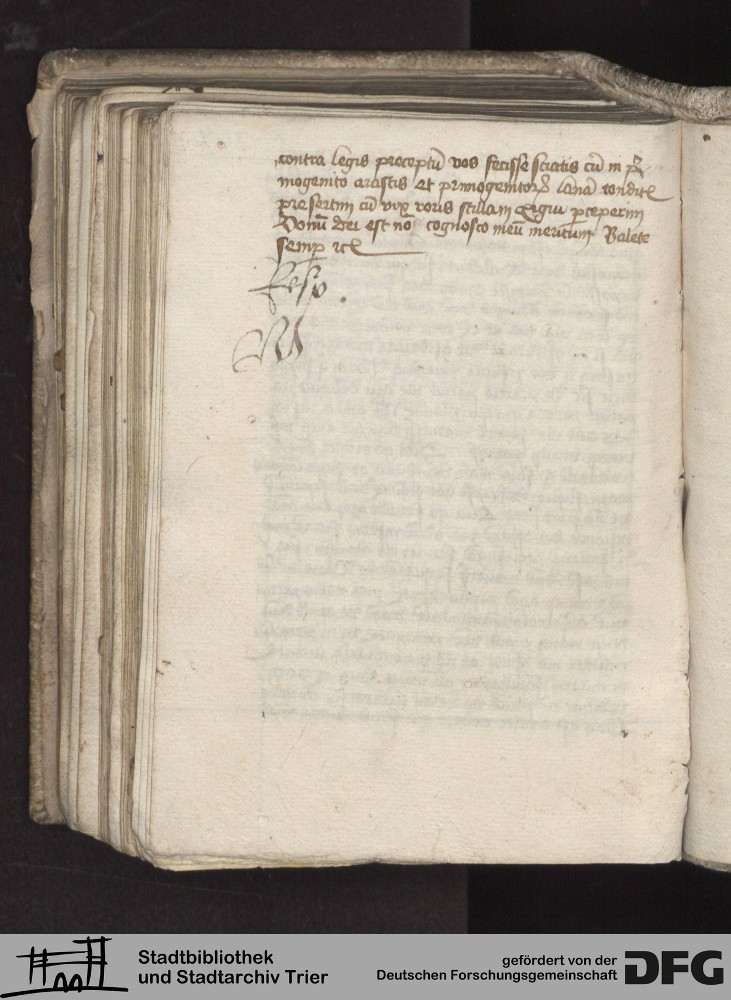 contra legis praeceptū vos fecisse sciatis cū in p̄
mogenito arastis et primogenitorꝫ lanā tondit
presertim cū vix roris stillam exiguā perceperim
Donū dei est nō cognosco meū meritum Valete
semp̲ rcꝉ
Stadtbibliothek
und Stadtarchiv Trier
gefördert von der
Deutschen Forschungsgemeinschaft
DFG